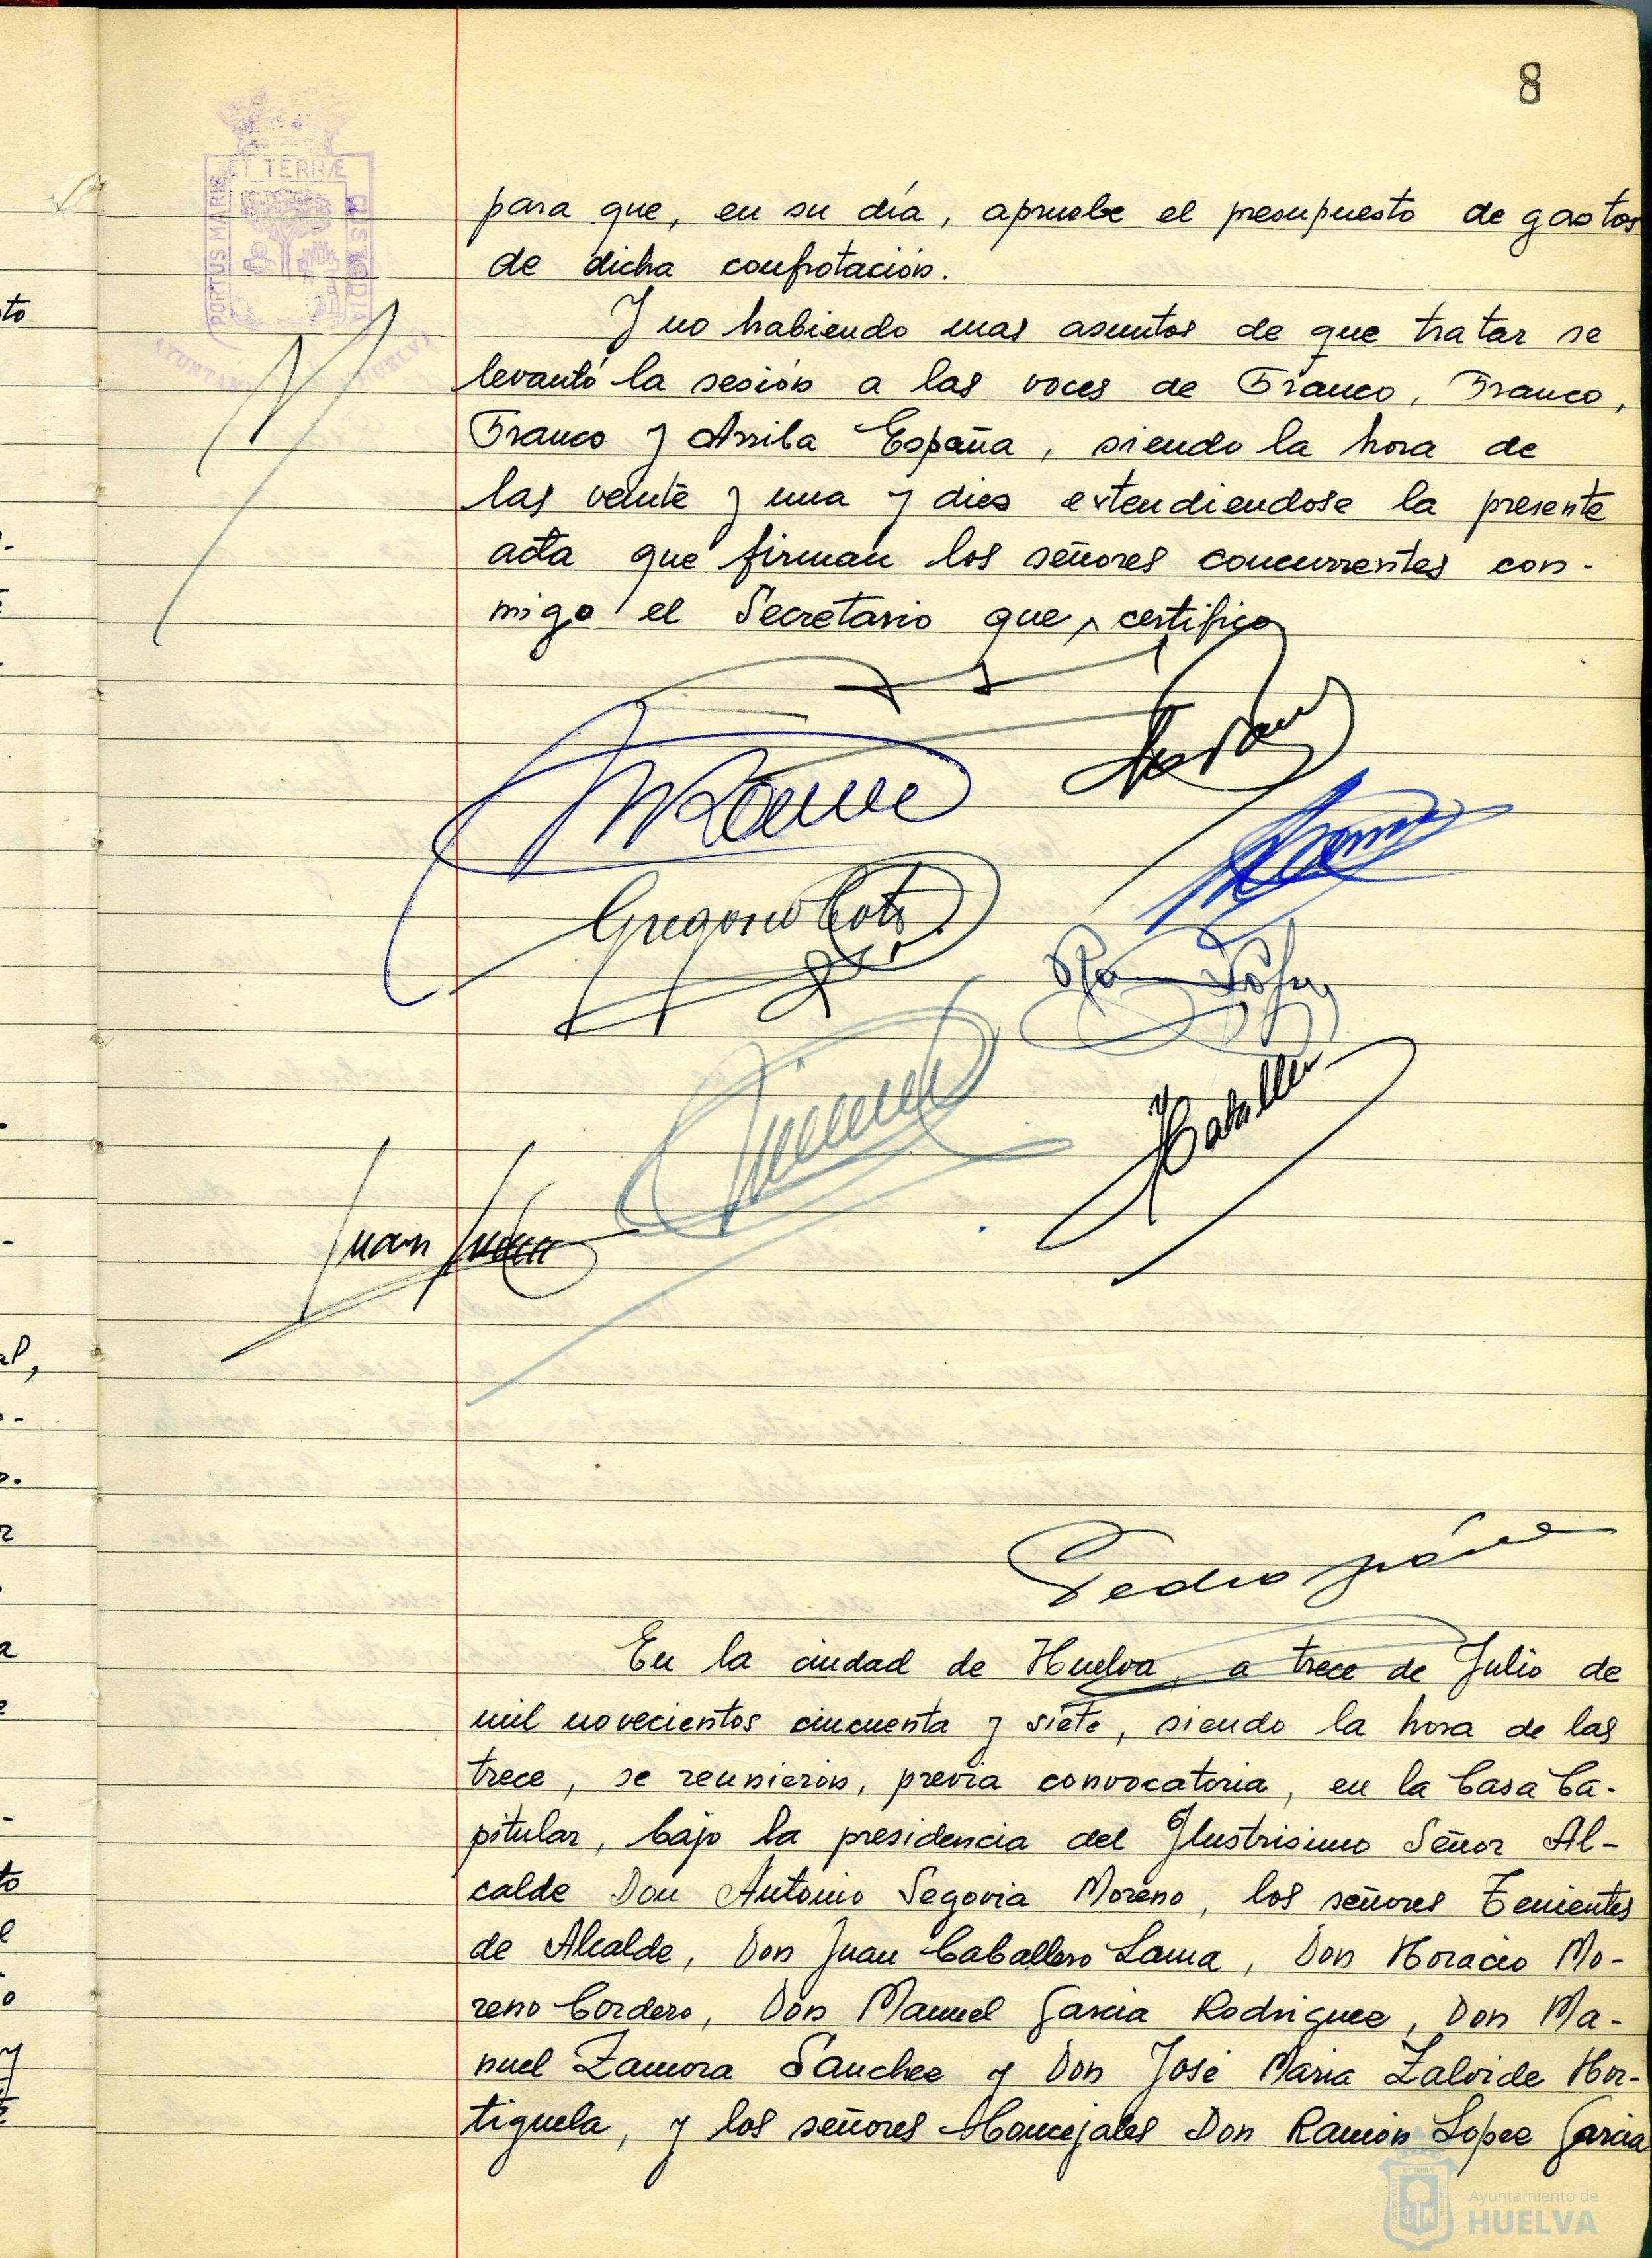 8
ET TERRÆ
PORTUS MARIS
CUSTODIA
AYUNTAM HUELVA
para que, en su día, apruebe el presupuesto de gastos
de dicha confrotación.
Y no habiendo mas asuntos de que tratar se
levantó la sesión a las voces de Franco, Franco,
Franco y Arriba España, siendo la hora de
las veinte y una y dies extendiendose la presente
acta que firman los señores concurrentes con-
migo el Secretario que, certifico
Gregorio
Caballero
Juan
Pedro
En la ciudad de Huelva, a trece de Julio de
mil novecientos cincuenta y siete, siendo la hora de las
trece, se reunieron, previa convocatoria, en la Casa Ca-
pitular, bajo la presidencia del Ilustrisimo Señor Al-
calde Don Antonio Segovia Moreno, los señores Tenientes
de Alcalde, Don Juan Caballero Lama, Don Horacio Mo-
reno Cordero, Don Manuel Garcia Rodriguez, Don Ma-
nuel Zamora Sanchez y Don José Maria Zalvide Hor-
tiguela, y los señores Concejales Don Ramón Lopez Garcia
Ayuntamiento de
HUELVA